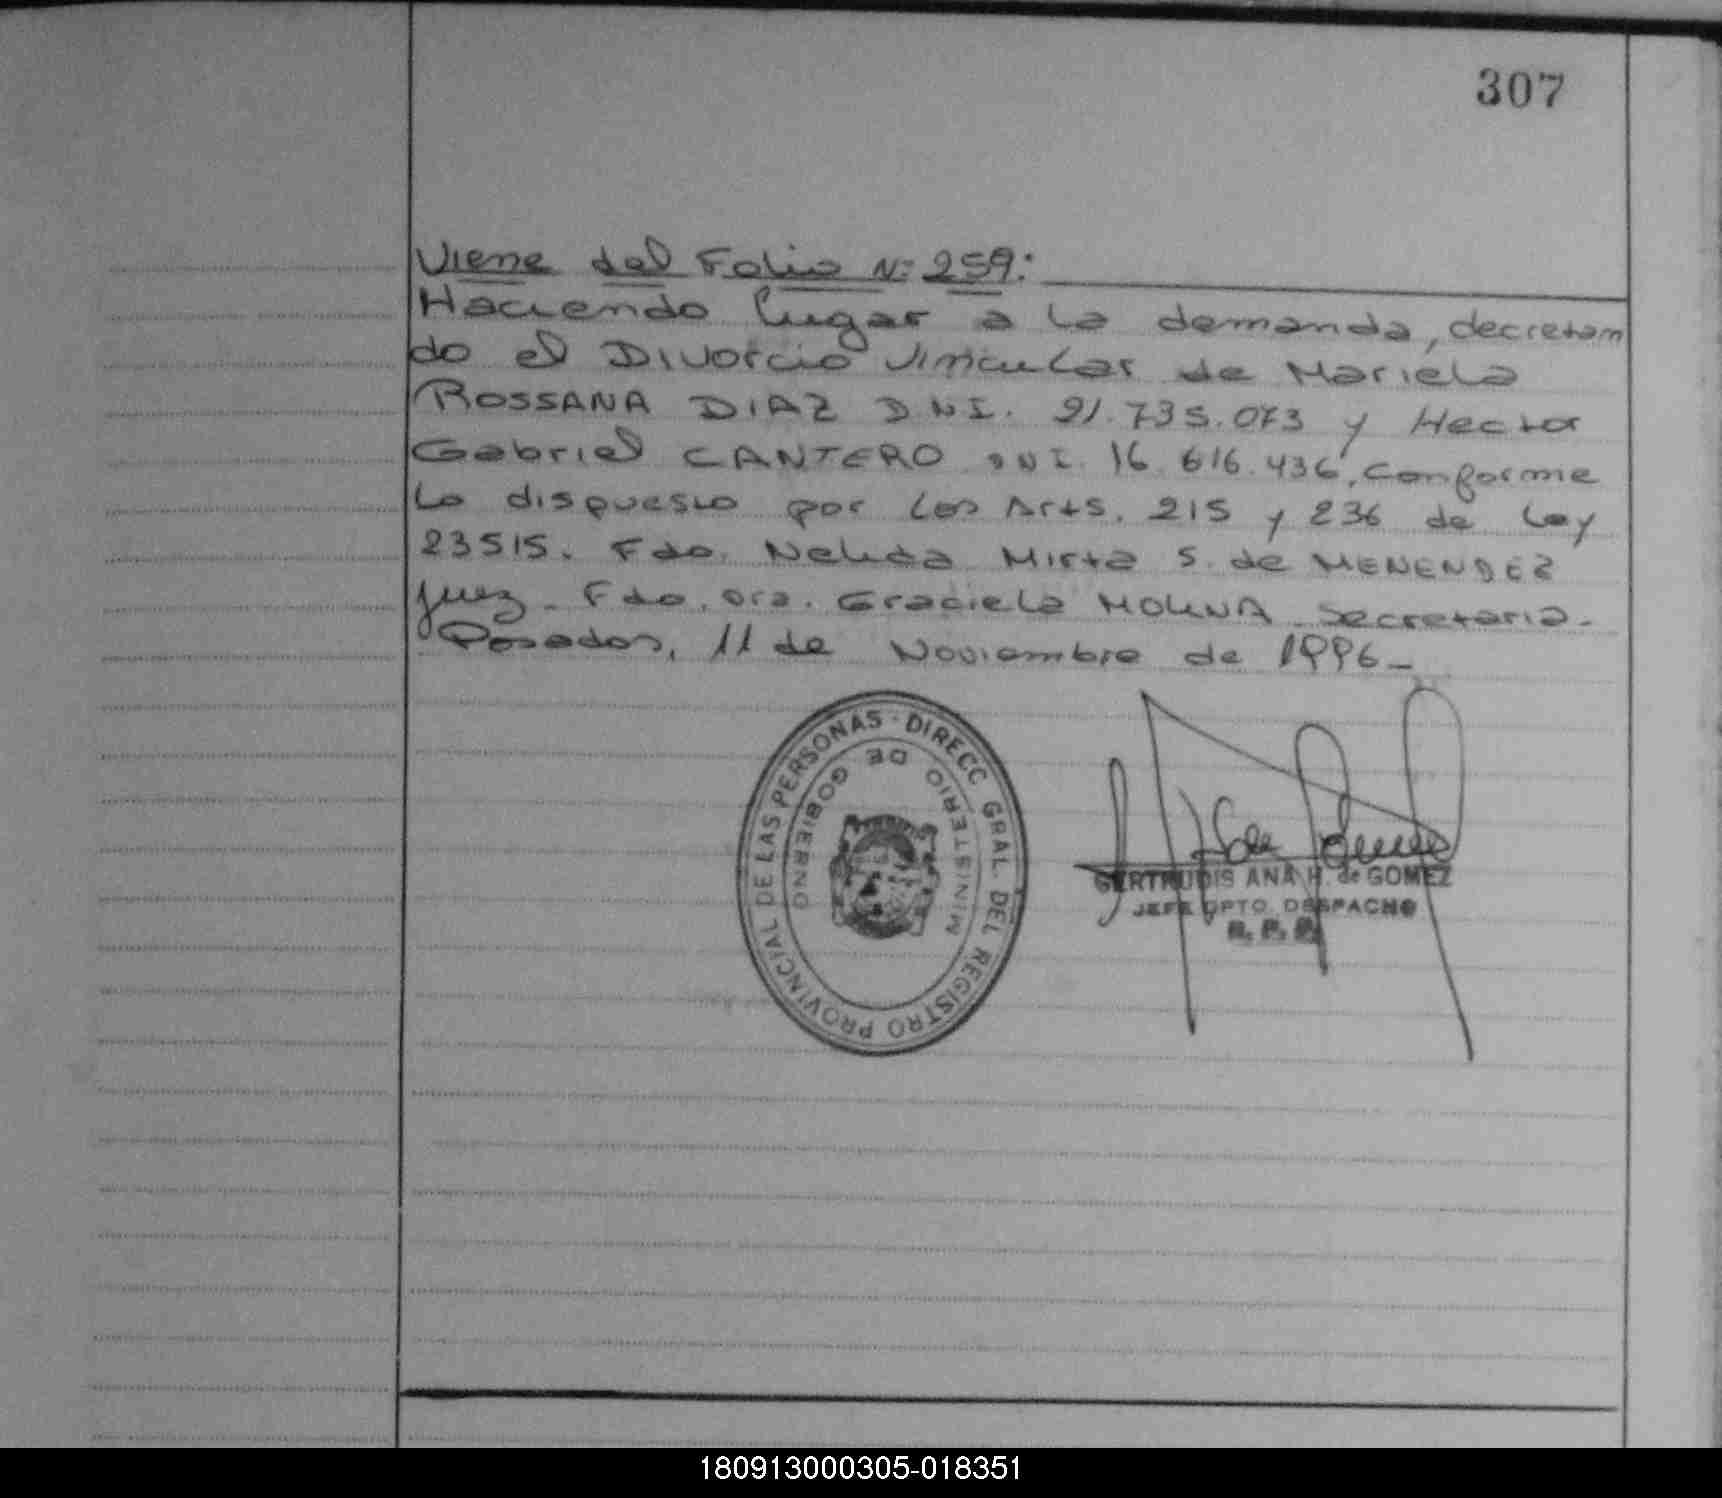 307
Viene del Folio Nº 259:
Haciendo lugar a la demanda, decretan
do el Divorcio Vincular de Mariela
ROSSANA DIAZ DNI. 21.735.073 y Hector
Gabriel CANTERO DNI. 16.616.436, conforme
lo dispuesto por los Arts. 215 y 236 de Ley
23515. Fdo. Nelida Mirta S. de MENENDEZ
Juez - Fdo. Dra. Graciela MOLINA Secretaria -
Posadas, 11 de Noviembre de 1996 -
DIRECC GRAL. DEL REGISTRO PROVINCIAL DE LAS PERSONAS -
MINISTERIO DE GOBIERNO
GERTRUDIS ANA H. de GOMEZ
JEFE DPTO. DESPACHO
R. P. P.
180913000305-018351